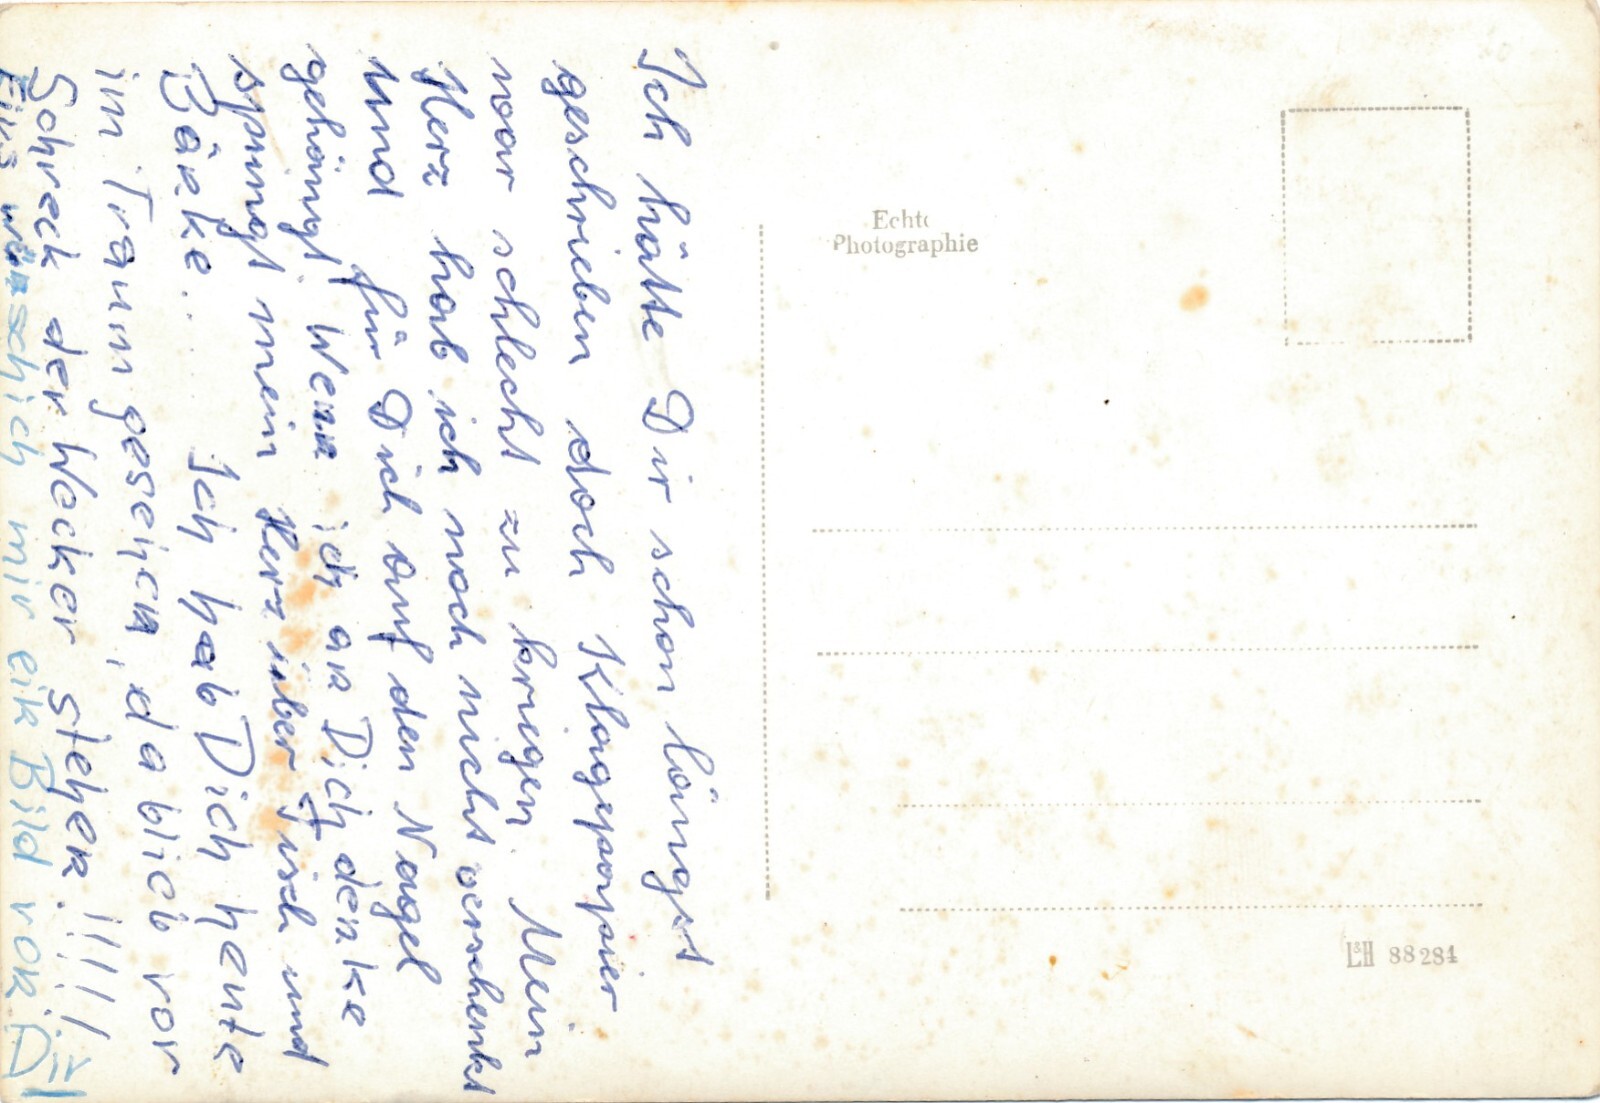 Ich hätte Dir schon längst
geschrieben doch Klagepapier
war schlecht zu kriegen. Mein
Herz hab ich noch nicht verschenkt
und für Dich auf den Nagel
gehängt Wenn ich an Dich denke
springt mein Herz über Tisch und
Bänke.. Ich hab Dich heute
im Traum gesehen, da blieb vor
Schreck der Wecker stehen.!!!!
Eins wünsch ich mir ein Bild von Dir!
Echte
Photographie
L&H 88284